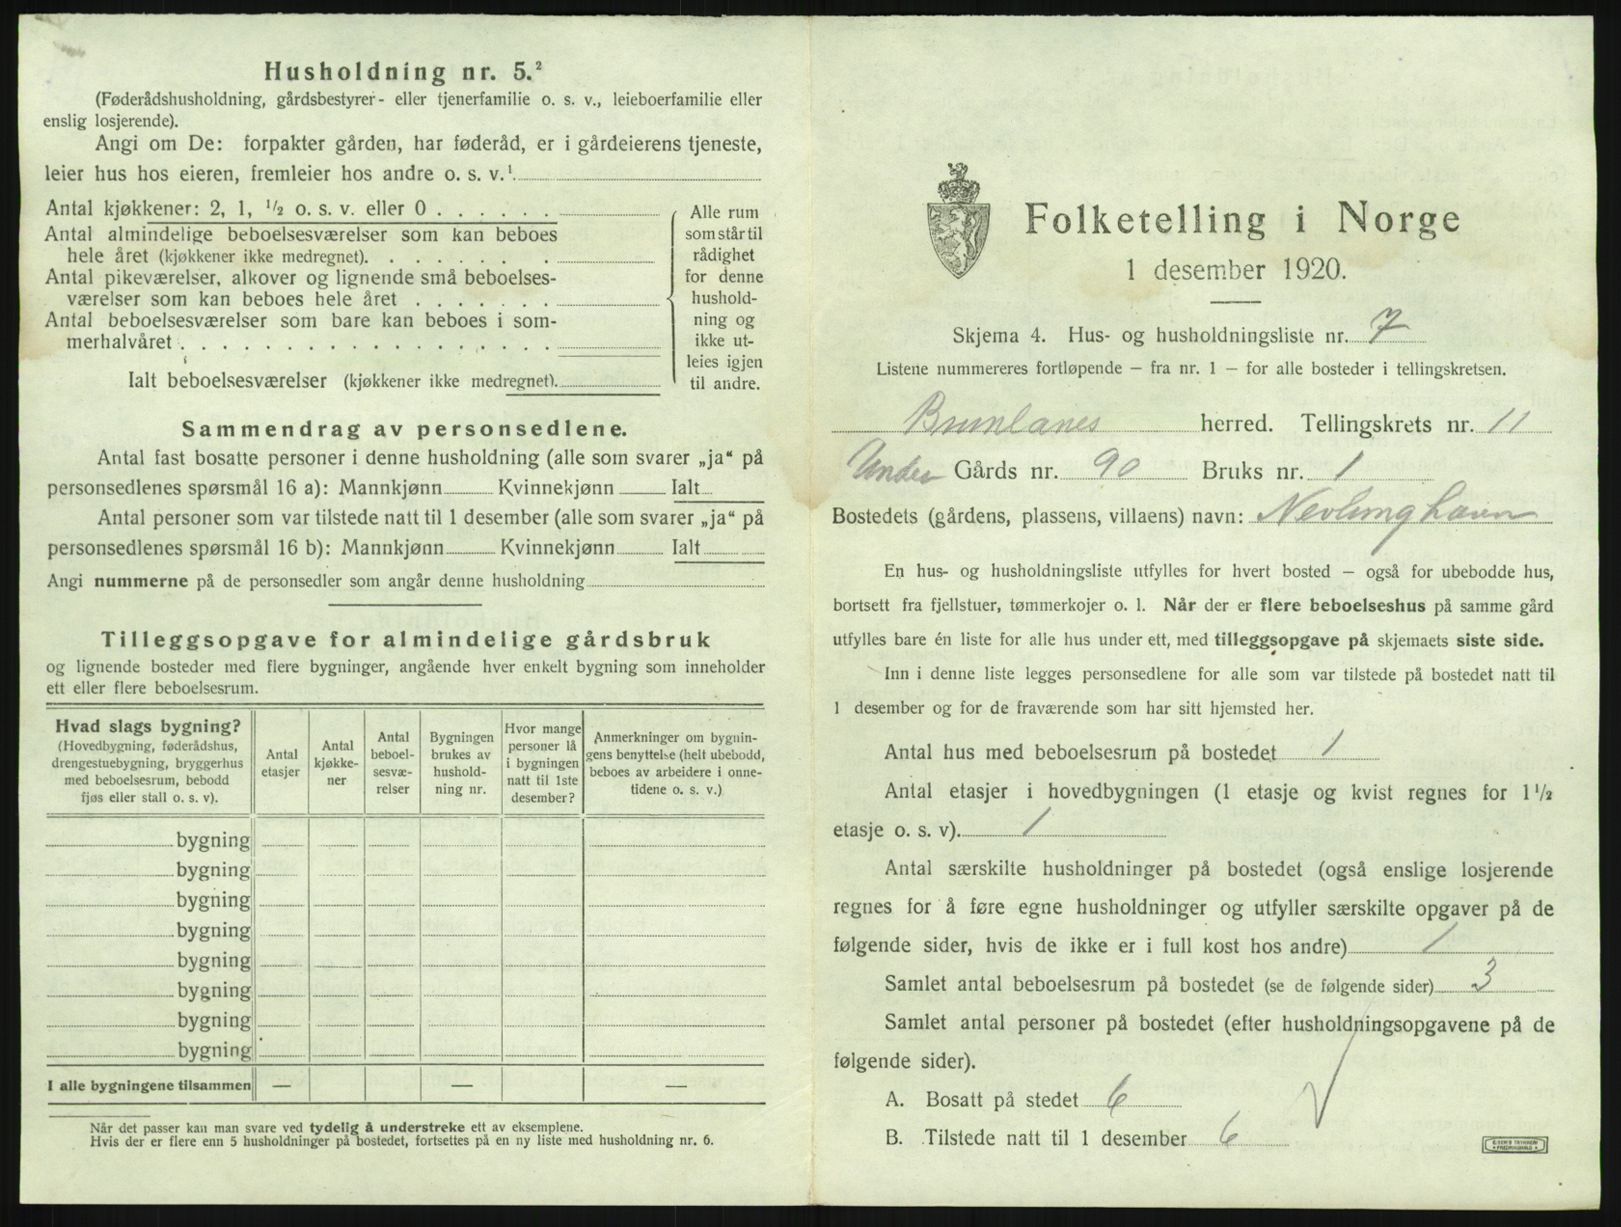 Husholdning nr. 5.²
(Føderådshusholdning, gårdsbestyrer- eller tjenerfamilie o. s. v., leieboerfamilie eller
enslig losjerende).
Angi om De: forpakter gården, har føderåd, er i gårdeierens tjeneste,
leier hus hos eieren, fremleier hos andre o. s. v.¹
Antal kjøkkener: 2, 1, ½ o. s. v. eller 0 . . . . . .
Antal almindelige beboelsesværelser som kan beboes
hele året (kjøkkener ikke medregnet). . . . . . .
Antal pikeværelser, alkover og lignende små beboelses-
værelser som kan beboes hele året . . . . . . .
Antal beboelsesværelser som bare kan beboes i som-
merhalvåret . . . . . . . . . . . . . . . . . .
Ialt beboelsesværelser (kjøkkener ikke medregnet).
Alle rum
som står til
rådighet
for denne
hushold-
ning og
ikke ut-
leies igjen
til andre.
Sammendrag av personsedlene.
Antal fast bosatte personer i denne husholdning (alle som svarer „ja“ på
personsedlenes spørsmål 16 a): Mannkjønn Kvinnekjønn Ialt
Antal personer som var tilstede natt til 1 desember (alle som svarer „ja“ på
personsedlenes spørsmål 16 b): Mannkjønn Kvinnekjønn Ialt
Angi nummerne på de personsedler som angår denne husholdning
Tilleggsopgave for almindelige gårdsbruk
og lignende bosteder med flere bygninger, angående hver enkelt bygning som inneholder
ett eller flere beboelsesrum.
Hvad slags bygning?
(Hovedbygning, føderådshus,
drengestuebygning, bryggerhus
med beboelsesrum, bebodd
fjøs eller stall o. s. v).
Antal
etasjer
Antal
kjøkke-
ner
Antal
beboel-
sesvæ-
relser
Bygningen
brukes av
hushold-
ning nr.
Hvor mange
personer lå
i bygningen
natt til 1ste
desember?
Anmerkninger om bygnin-
gens benyttelse (helt ubebodd,
beboes av arbeidere i onne-
tidene o. s. v.)
bygning
bygning
bygning
bygning
bygning
bygning
bygning
bygning
I alle bygningene tilsammen — — —
Når det passer kan man svare ved tydelig å understreke ett av eksemplene.
Hvis der er flere enn 5 husholdninger på bostedet, fortsettes på en ny liste med husholdning nr. 6.
Folketelling i Norge
1 desember 1920.
Skjema 4. Hus- og husholdningsliste nr. 7
Listene nummereres fortløpende – fra nr. 1 – for alle bosteder i tellingskretsen.
Brunlanes herred. Tellingskrets nr. 11
Under Gårds nr. 90 Bruks nr. 1
Bostedets (gårdens, plassens, villaens) navn: Nevlunghavn
En hus- og husholdningsliste utfylles for hvert bosted – også for ubebodde hus,
bortsett fra fjellstuer, tømmerkojer o. l. Når der er flere beboelseshus på samme gård
utfylles bare én liste for alle hus under ett, med tilleggsopgave på skjemaets siste side.
Inn i denne liste legges personsedlene for alle som var tilstede på bostedet natt til
1 desember og for de fraværende som har sitt hjemsted her.
Antal hus med beboelsesrum på bostedet 1
Antal etasjer i hovedbygningen (1 etasje og kvist regnes for 1½
etasje o. s. v). 1
Antal særskilte husholdninger på bostedet (også enslige losjerende
regnes for å føre egne husholdninger og utfyller særskilte opgaver på de
følgende sider, hvis de ikke er i full kost hos andre) 1
Samlet antal beboelsesrum på bostedet (se de følgende sider) 3
Samlet antal personer på bostedet (efter husholdningsopgavene på de
følgende sider).
A. Bosatt på stedet 6
B. Tilstede natt til 1 desember 6